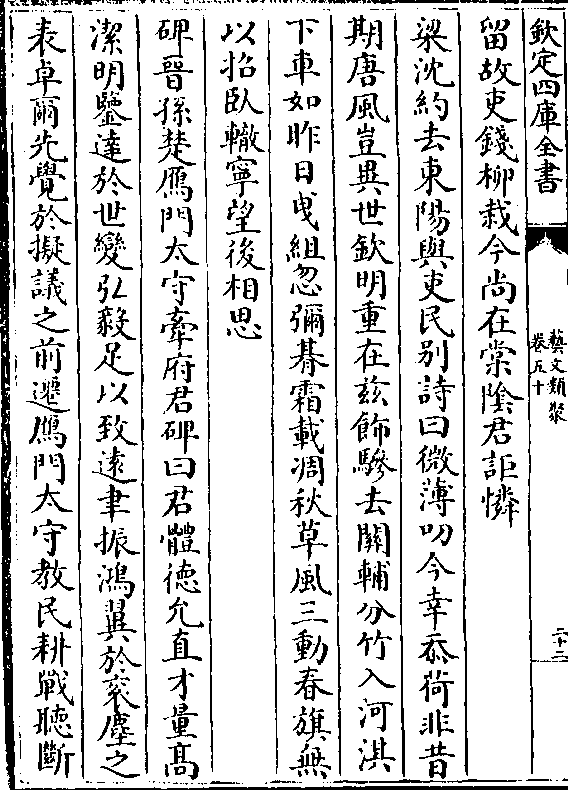 欽定四庫全書
藝文類聚
卷五十
二十二
留故吏錢柳栽今尚在棠陰君詎憐
梁沈約去東陽與吏民别詩曰微薄叨今幸忝荷非昔
期唐風豈異世欽明重在兹飾驂去關輔分竹入河淇
下車如昨日曳組忽彌朞霜載凋秋草風三動春旗無
以招卧轍寧望後相思
碑晉孫楚鴈門太守牽府君碑曰君體德允直才量髙
潔明鑒達於世變弘毅足以致逺聿振鴻翼於衮塵之
表卓爾先覺於擬議之前遷鴈門太守教民耕戰聽斷